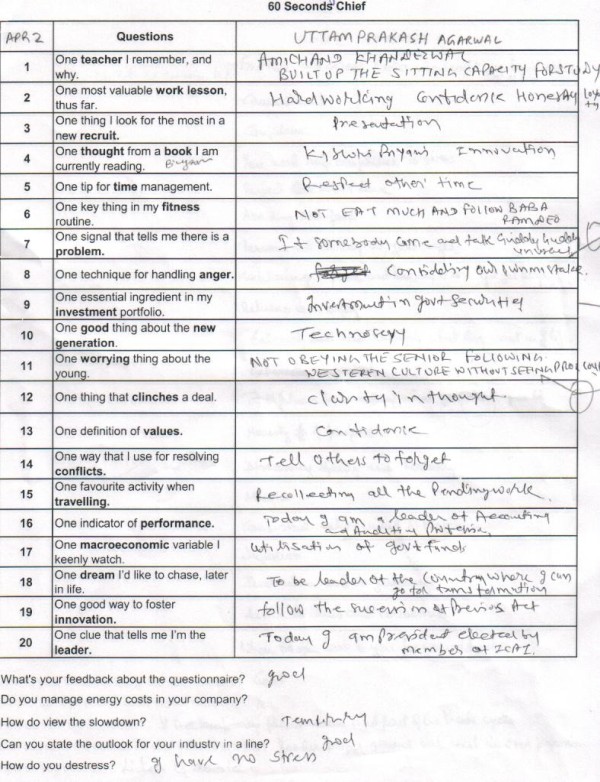 60 Seconds Chief
APR 2 Questions UTTAM PRAKASH AGARWAL
1 One teacher I remember, and why. AMICHAND KHANDELWAL
BUILT UP THE SITTING CAPACITY FOR STUDY
2 One most valuable work lesson, thus far. Hardworking Confidence Honesty
3 One thing I look for the most in a new recruit. Presentation
4 One thought from a book I am currently reading. Innovation
5 One tip for time management. Respect other' time
6 One key thing in my fitness routine. NOT EAT MUCH AND FOLLOW BABA
RAMDEO
7 One signal that tells me there is a problem. If somebody come and talk
8 One technique for handling anger. Considering own mistake.
9 One essential ingredient in my investment portfolio. Investment in govt securities
10 One good thing about the new generation. Technology
11 One worrying thing about the young. NOT OBEYING THE SENIOR FOLLOWING
WESTEREN CULTURE WITHOUT SEEING PROS
12 One thing that clinches a deal. clarity in thought
13 One definition of values. Confidence
14 One way that I use for resolving conflicts. Tell Others to forget
15 One favourite activity when travelling. Recollecting all the Pending work.
16 One indicator of performance. Today I am a leader of Accounting
and Auditing Profession.
17 One macroeconomic variable I keenly watch. Utilisation of govt funds
18 One dream I'd like to chase, later in life. To be leader of the Country where I can
go for transformation
19 One good way to foster innovation. follow the succession of previous Act
20 One clue that tells me I'm the leader. Today I am President elected by
member of ICAI.
What's your feedback about the questionnaire? good
Do you manage energy costs in your company?
How do view the slowdown? Temporary
Can you state the outlook for your industry in a line? good
How do you destress? I have no stress